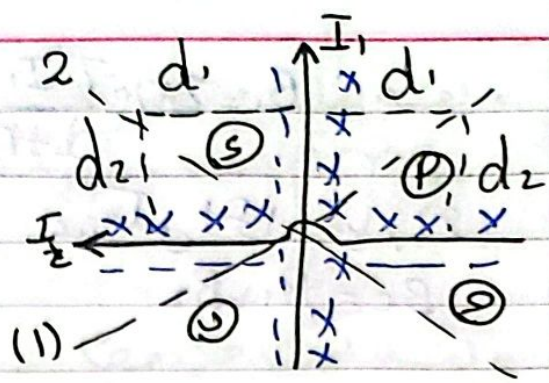 I₁
2 d₁ d₁
d₂ S P d₂
I₂
(1)